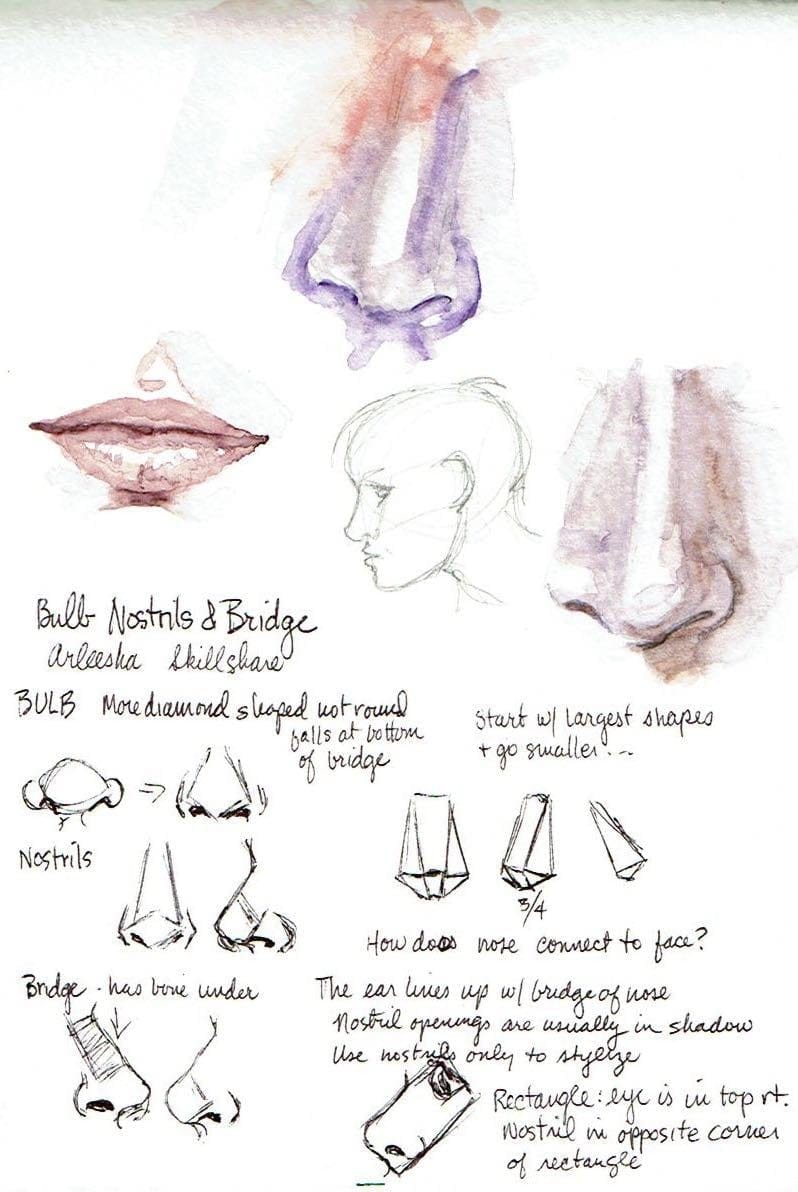 Bulb Nostrils & Bridge
Arleesha Skillshare
BULB More diamond shaped not round
falls at bottom
of bridge
Start w/ largest shapes
+ go smaller...
Nostrils
3/4
How does nose connect to face?
Bridge - has bone under
The ear lines up w/ bridge of nose
Nostril openings are usually in shadow
Use nostrils only to stylize
Rectangle: eye is in top rt.
Nostril in opposite corner
of rectangle